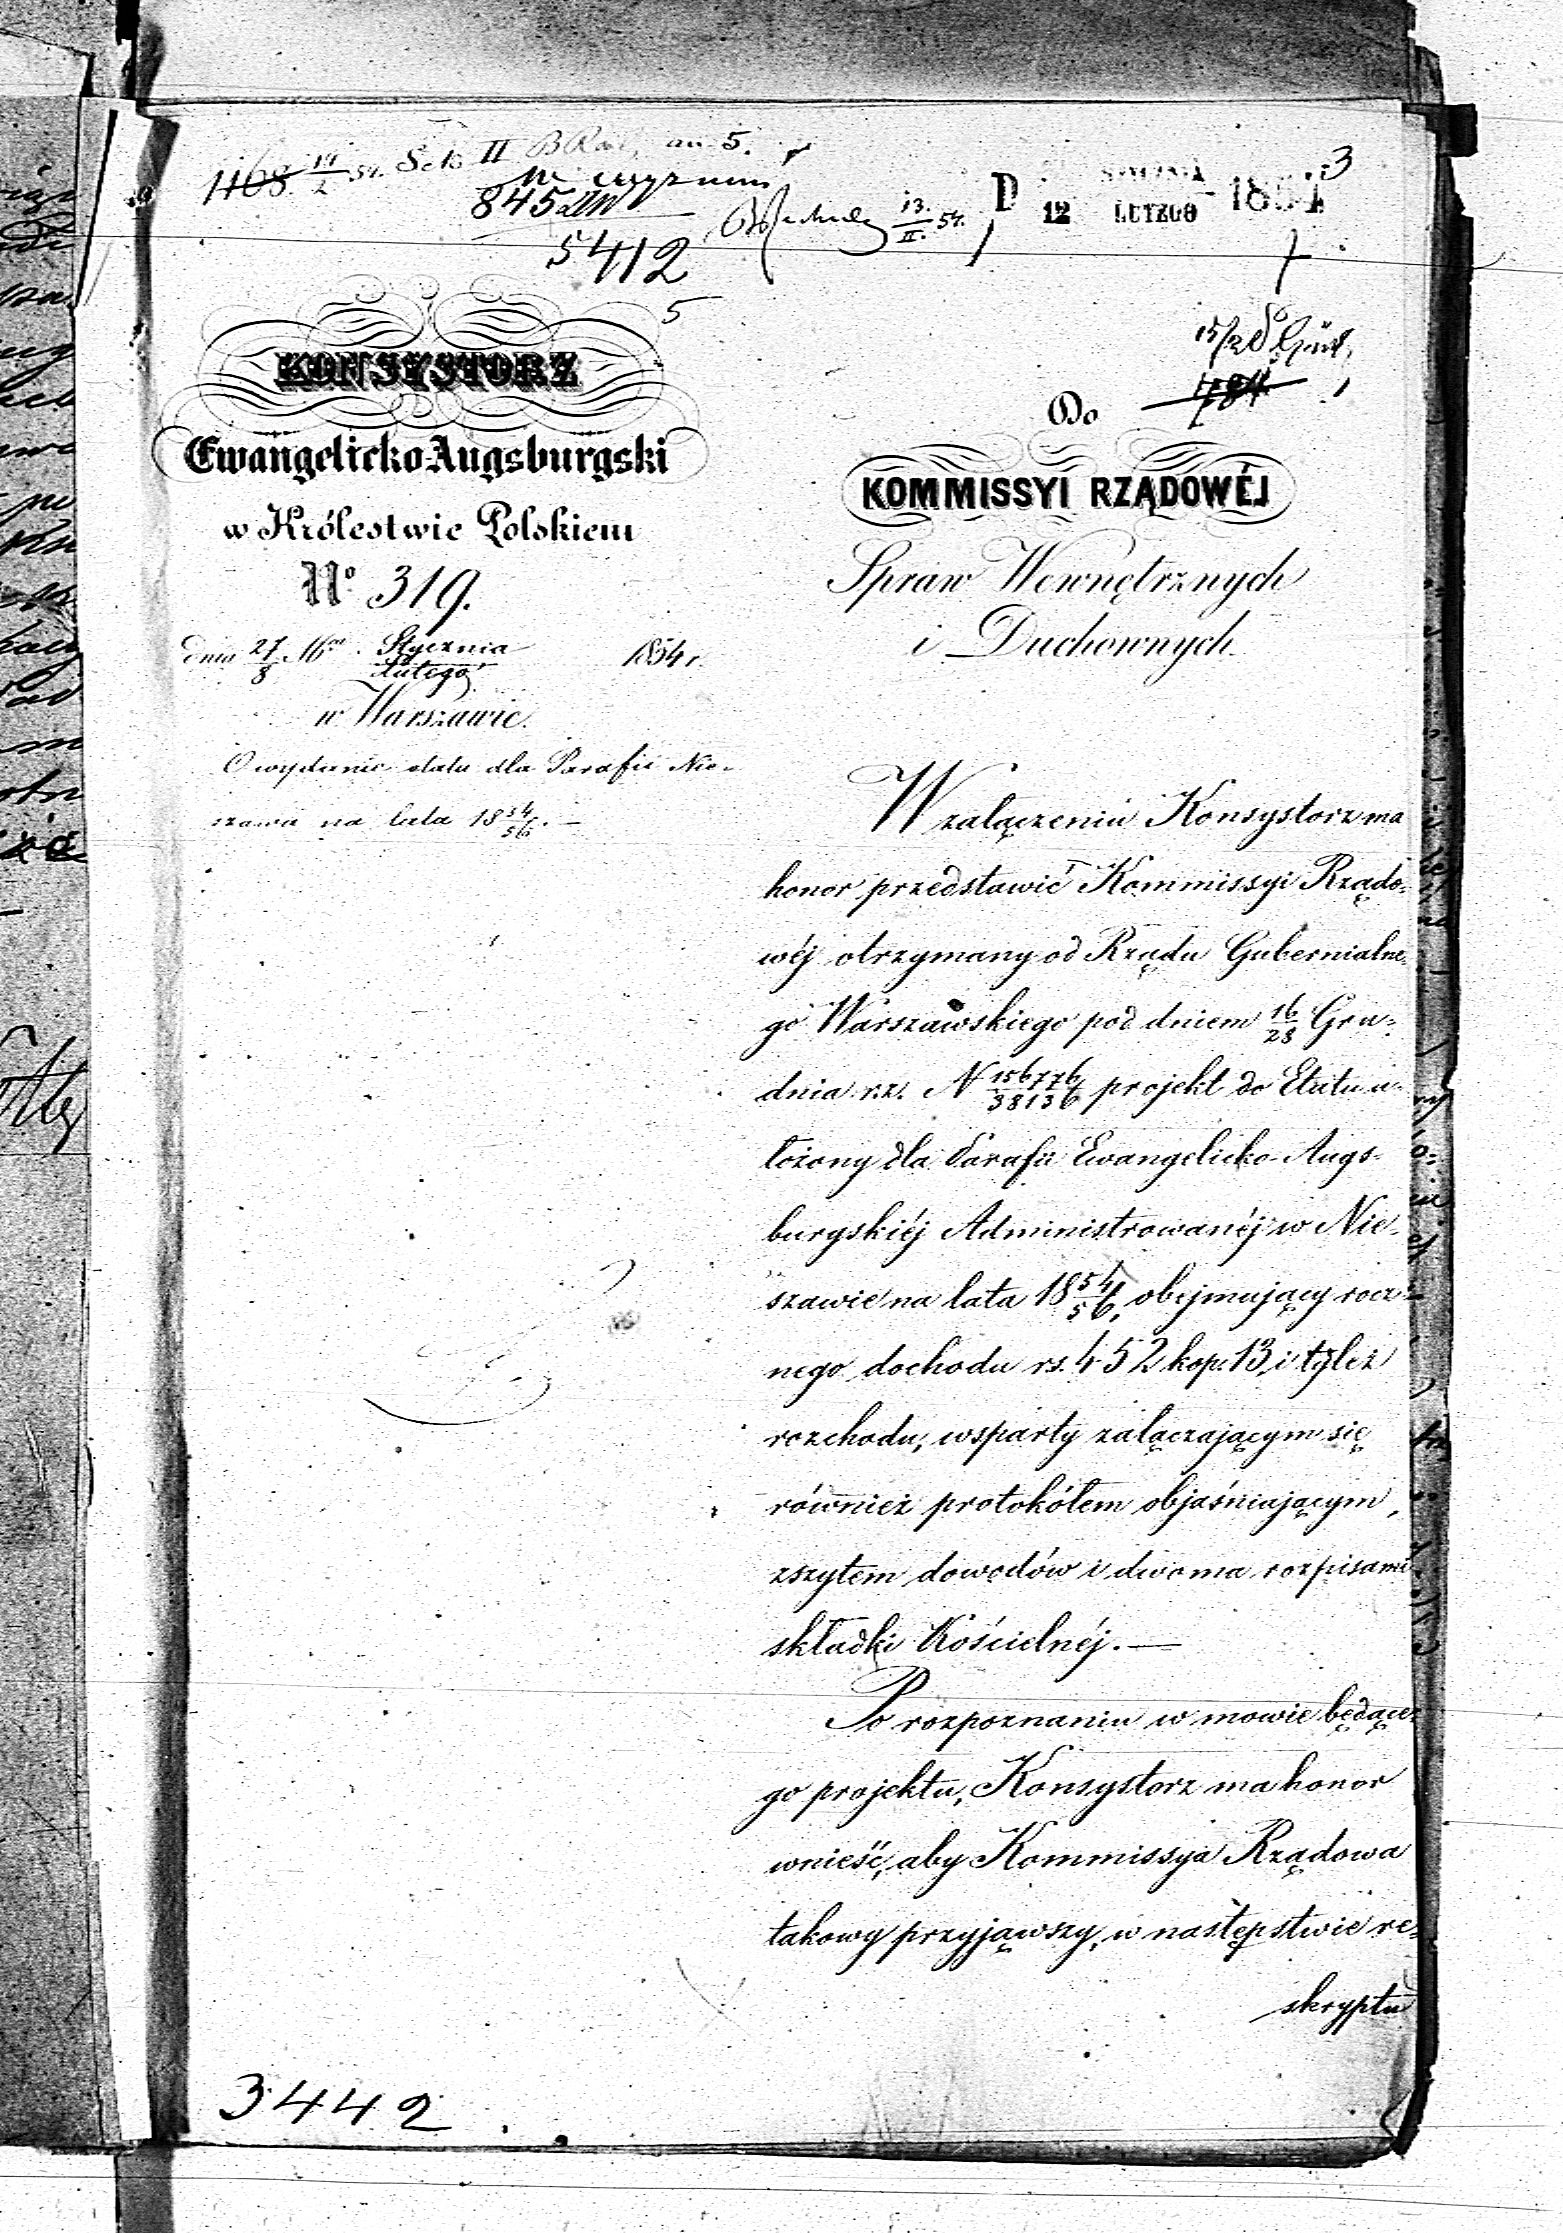 1168 14/2 54. Sek II
845
5412
13./II. 54.
D 12 STYCZNIA LUTEGO 1854
3
5
784
KONSYSTORZ
Ewangelicko-Augsburgski
w Królestwie Polskiem
No 319.
dnia 27/8 Stycznia/Lutego 1854 r.
w Warszawie.
O wydanie etatu dla Parafii Nie-
szawa na lata 18 54/56. —
Do
KOMMISSYI RZĄDOWÉJ
Spraw Wewnętrznych
i Duchownych
W załączeniu Konsystorz ma
honor przedstawić Kommissyi Rządo-
wéj otrzymany od Rządu Gubernialne-
go Warszawskiego pod dniem 16/28 Gru-
dnia r.z. N 156776/38136 projekt do Etatu u-
łożony dla Parafii Ewangelicko-Augs-
burgskiéj Administrowanéj w Nie-
szawie na lata 18 54/56, obejmujący rocz-
nego dochodu rs. 452 kop. 13, i tyleż
rozchodu, wsparty załączającym się
również protokółem objaśniającym,
zszytem dowodów i dwoma rozpisami
składki Kościelnéj. —
Po rozpoznaniu w mowie będące-
go projektu, Konsystorz ma honor
wnieść, aby Kommissya Rządowa
takowy przyjąwszy, w następstwie re-
skryptu
3442